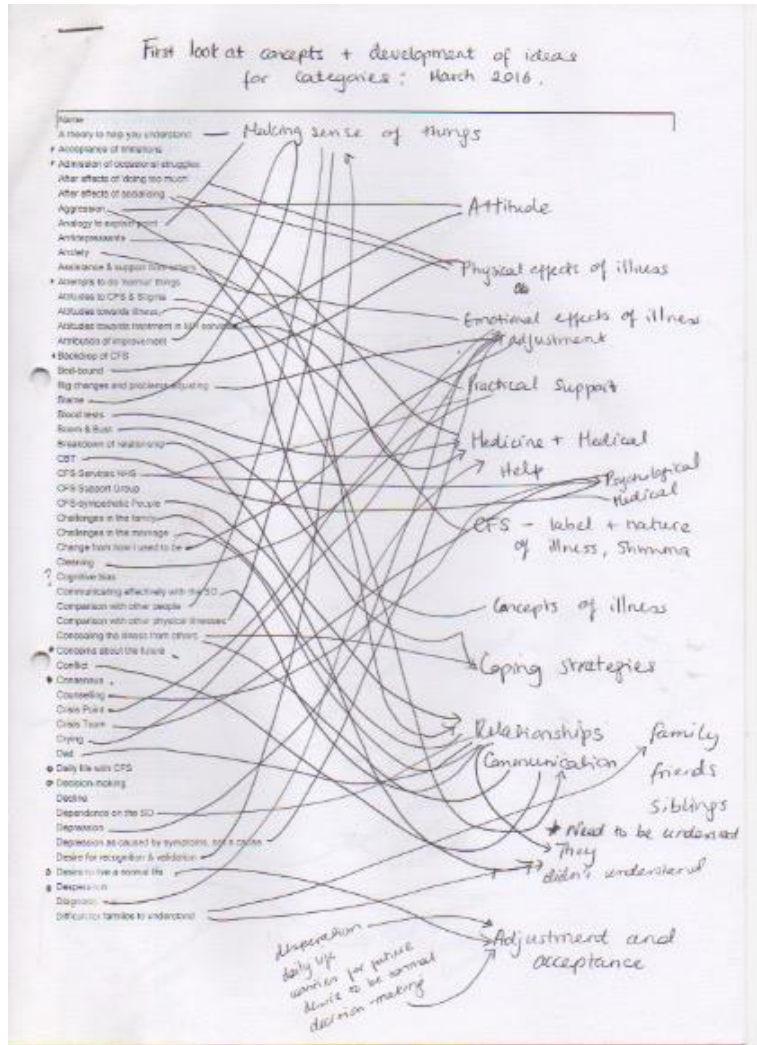 First look at concepts + development of ideas
for categories: March 2016.
Name
A theory to help you understand
Acceptance of limitations
Admission of occasional struggles
After effects of 'doing too much'
After effects of socialising
Aggression
Analogy to explain point
Antidepressants
Anxiety
Assistance & support from others
Attempts to do 'normal' things
Attitudes to CFS & Stigma
Attitudes towards illness
Attitudes towards treatment in
Attribution of improvement
Backdrop of CFS
Bed-bound
Big changes and problems adjusting
Blame
Blood tests
Boom & Bust
Breakdown of relationship
CBT
CFS Services NHS
CFS Support Group
CFS-sympathetic People
Challenges in the family
Challenges in the marriage
Change from how I used to be
Cleaning
? Cognitive bias
Communicating effectively with the SO
Comparison with other people
Comparison with other physical illnesses
Concealing the illness from others
Concerns about the future
Conflict
Consensus
Counselling
Crisis Point
Crisis Team
Crying
Dad
Daily life with CFS
Decision-making
Decline
Dependence on the SO
Depression
Depression as caused by symptoms, not a cause
Desire for recognition & validation
Desire to live a normal life
Desperation
Diagnosis
Difficult for families to understand
Making sense of things
Attitude
Physical effects of illness
Emotional effects of illness
adjustment
Practical Support
Medicine + Medical
Help
Psychological
Medical
CFS - label + nature
of illness,
Concepts of illness
Coping strategies
Relationships
Communication
family
friends
siblings
Need to be understood
They
didn't understand
Adjustment and
acceptance
desperation
daily life
worries for future
desire to be normal
decision-making